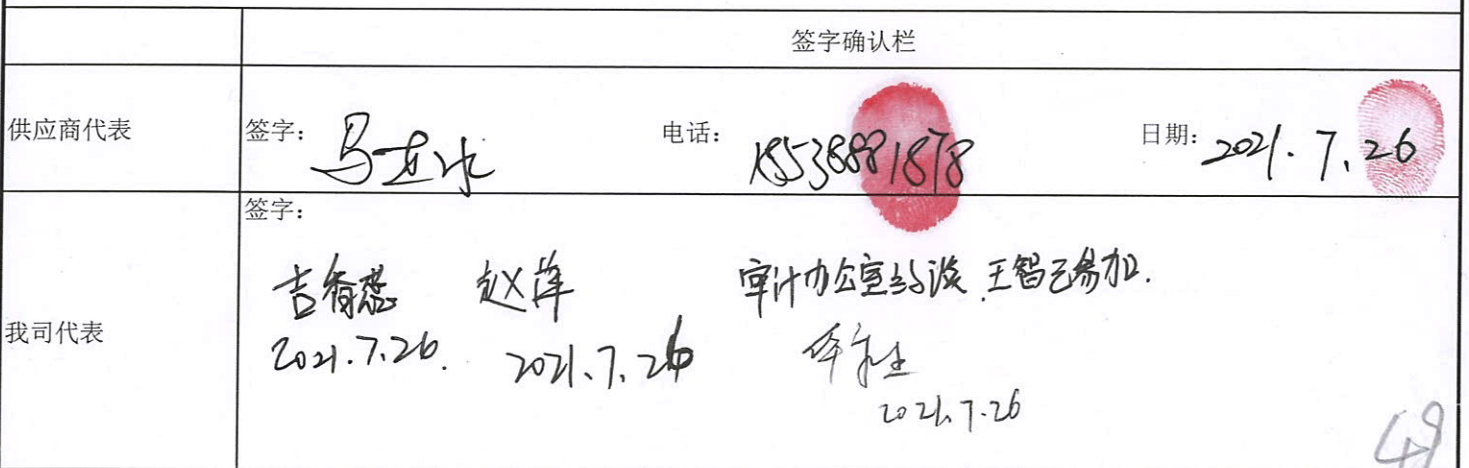 签字确认栏
供应商代表 签字: 电话: 18538881878 日期: 2021.7.26
签字:
我司代表
吉香蕊 赵萍 审计办公室约谈 王智已参加.
2021.7.26. 2021.7.26
2021.7.26
49